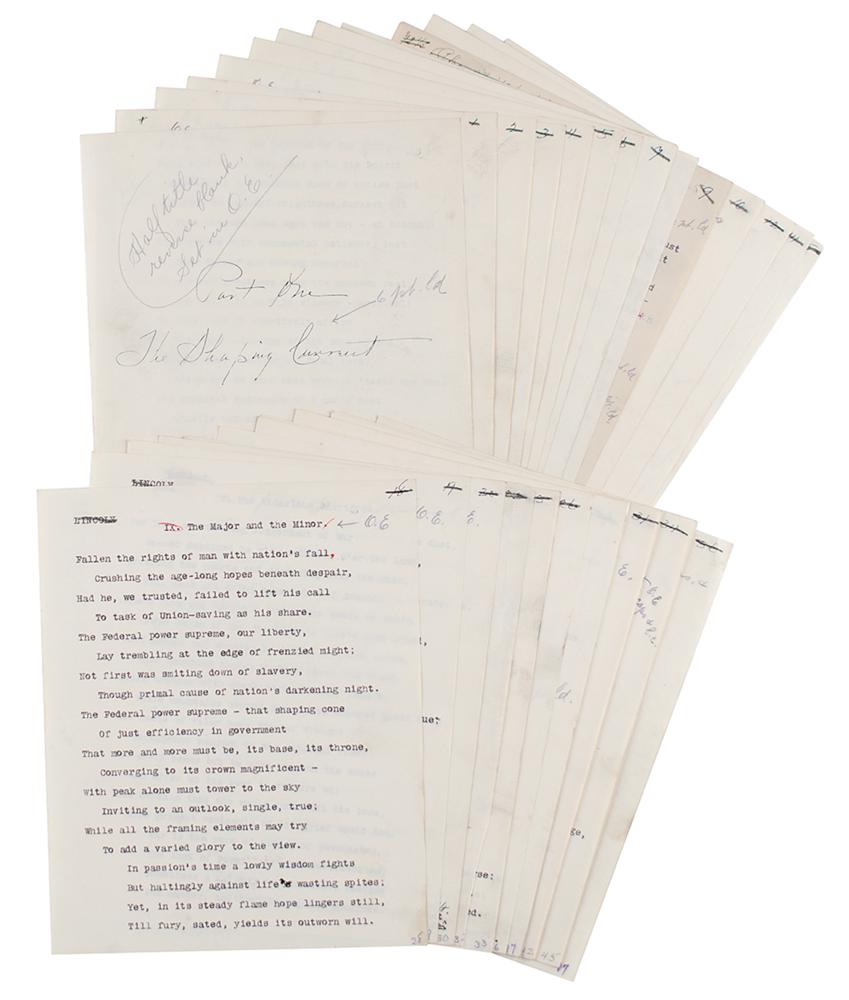 Half title
reverse blank
Set in O.E.
Part One
6 pt. ld
The Shaping Current
1 2 3 4 5 6 7 9
LINCOLN
LINCOLN
18 19
IX. The Major and the Minor. O.E O.E. E.
Fallen the rights of man with nation's fall,
Crushing the age-long hopes beneath despair,
Had he, we trusted, failed to lift his call
To task of Union-saving as his share.
The Federal power supreme, our liberty,
Lay trembling at the edge of frenzied might;
Not first was smiting down of slavery,
Though primal cause of nation's darkening night.
The Federal power supreme - that shaping cone
Of just efficiency in government
That more and more must be, its base, its throne,
Converging to its crown magnificent -
with peak alone must tower to the sky
Inviting to an outlook, single, true;
While all the framing elements may try
To add a varied glory to the view.
In passion's time a lowly wisdom fights
But haltingly against life's wasting spites;
Yet, in its steady flame hope lingers still,
Till fury, sated, yields its outworn will.
ust
t
d
ld.
ue;
ge,
se:
ed.
30 33 6 17 12 45